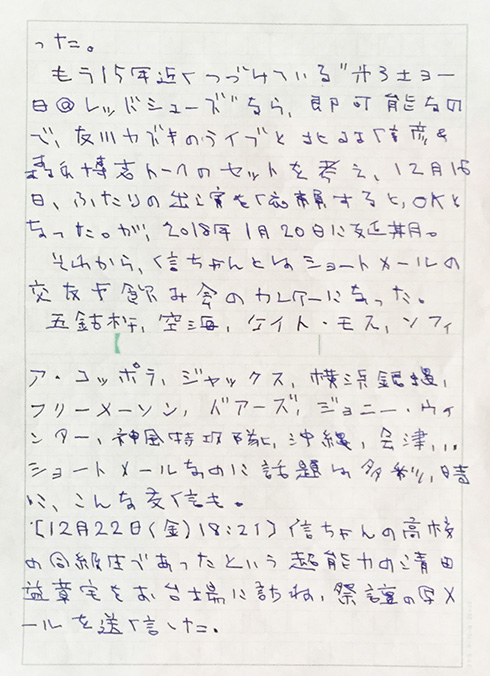 った。
もう15年近くつづけている"第3土ヨー
日@レッドシューズ"なら、即可能なの
で、友川カズキのライブと北るま信彦&
森永博志トークのセットを考え、12月16
日、ふたりの出演を依頼すると、OKと
なった。が、2018年1月20日に延期。
それから、信ちゃんとはショートメールの
交友や飲み会のカレケーになった。
五鈷杵、空海、ケイト・モス、ソフィ
ア・コッポラ、ジャックス、横浜銀蝿、
フリーメーソン、ドアーズ、ジョニー・ウィ
ンター、神風特攻隊、沖縄、会津、、、
ショートメールなのに話題は多彩、時
に、こんな交信も。
〔12月22日(金)18:21〕信ちゃんの高校
の同級生であったという超能力の清田
益章宅をお台場に訪ね、祭壇の写メ
ールを送信した。